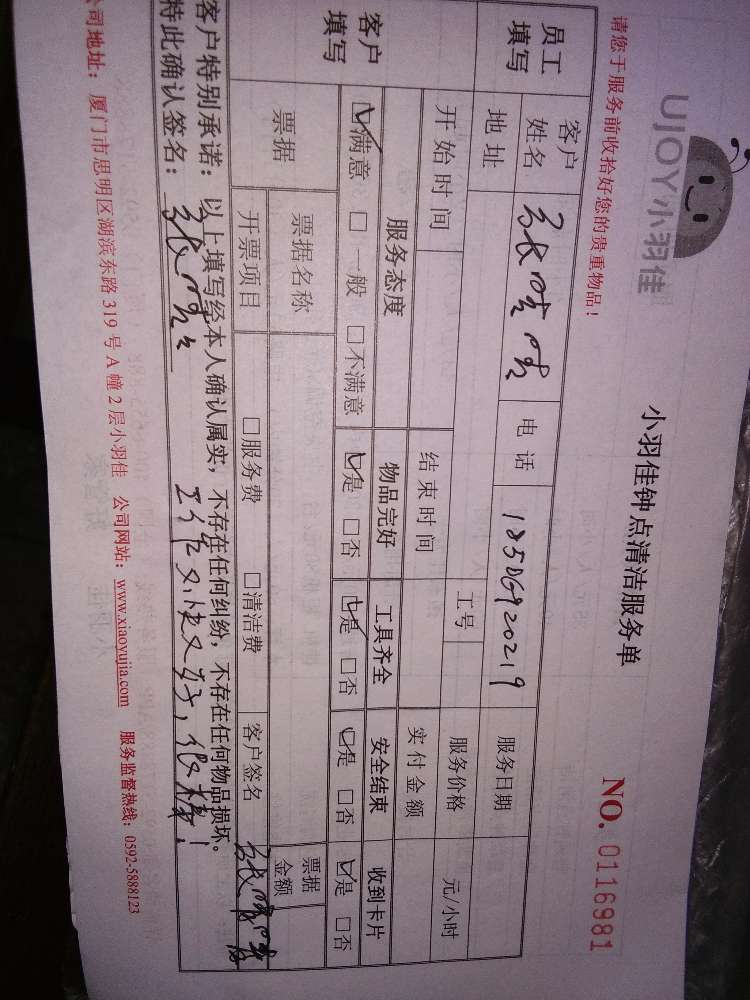 UJOY小羽佳
小羽佳钟点清洁服务单
请您于服务前收拾好您的贵重物品!
NO. 0116981
员工填写
客户姓名
电话
服务日期
地址
工号
服务价格
元/小时
开始时间
结束时间
实付金额
客户填写
服务态度
物品完好
工具齐全
安全结束
收到卡片
☑满意 □一般 □不满意
☑是 □否
☑是 □否
☑是 □否
☑是 □否
票据
票据名称
票据金额
开票项目
□服务费 □清洁费
客户签名
客户特别承诺：以上填写经本人确认属实，不存在任何纠纷，不存在任何物品损坏。
特此确认签名：
工作又快又好，很棒！
公司地址：厦门市思明区湖滨东路 319 号 A 幢 2 层小羽佳 公司网站：www.xiaoyujia.com 服务监督热线：0592-5888123